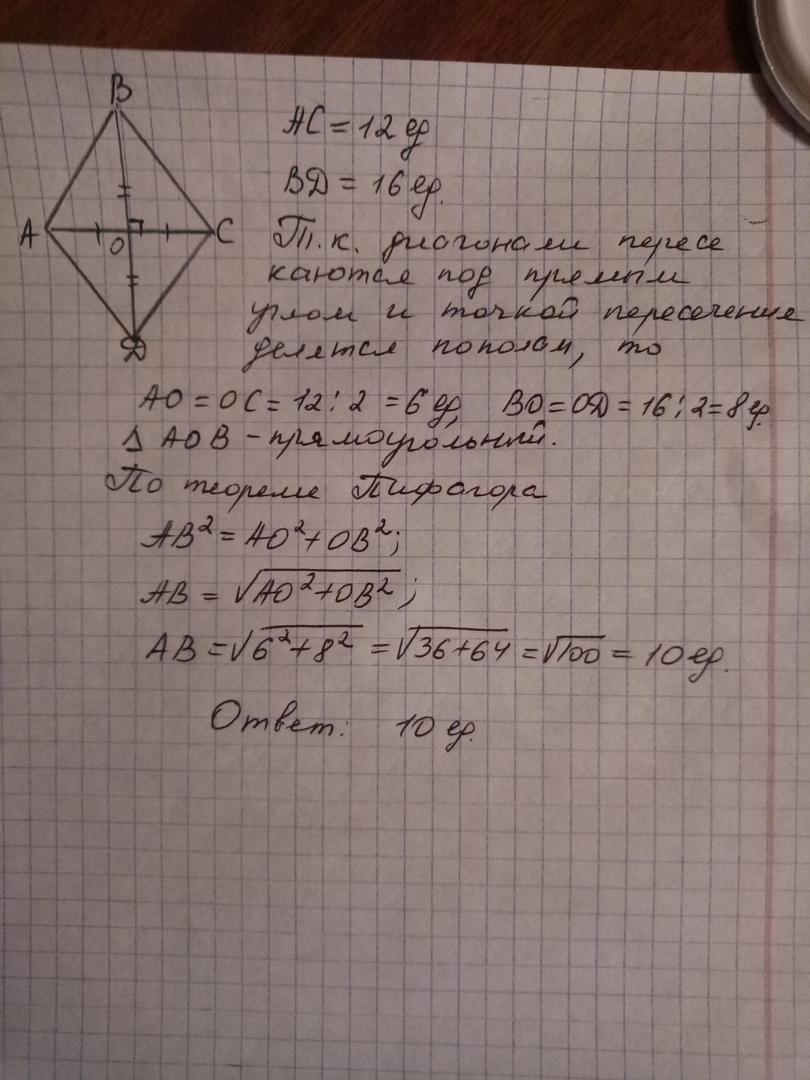 B
A
C
O
D
AC = 12 ед
BD = 16 ед.
Т.к. диагонали пересе
каются под прямым
углом и точкой пересечения
делятся пополам, то
AO = OC = 12 : 2 = 6 ед, BO = OD = 16 : 2 = 8 ед.
Δ AOB - прямоугольный.
По теореме Пифагора
AB² = AO² + OB²;
AB = √AO² + OB²;
AB = √6² + 8² = √36 + 64 = √100 = 10 ед.
Ответ: 10 ед.